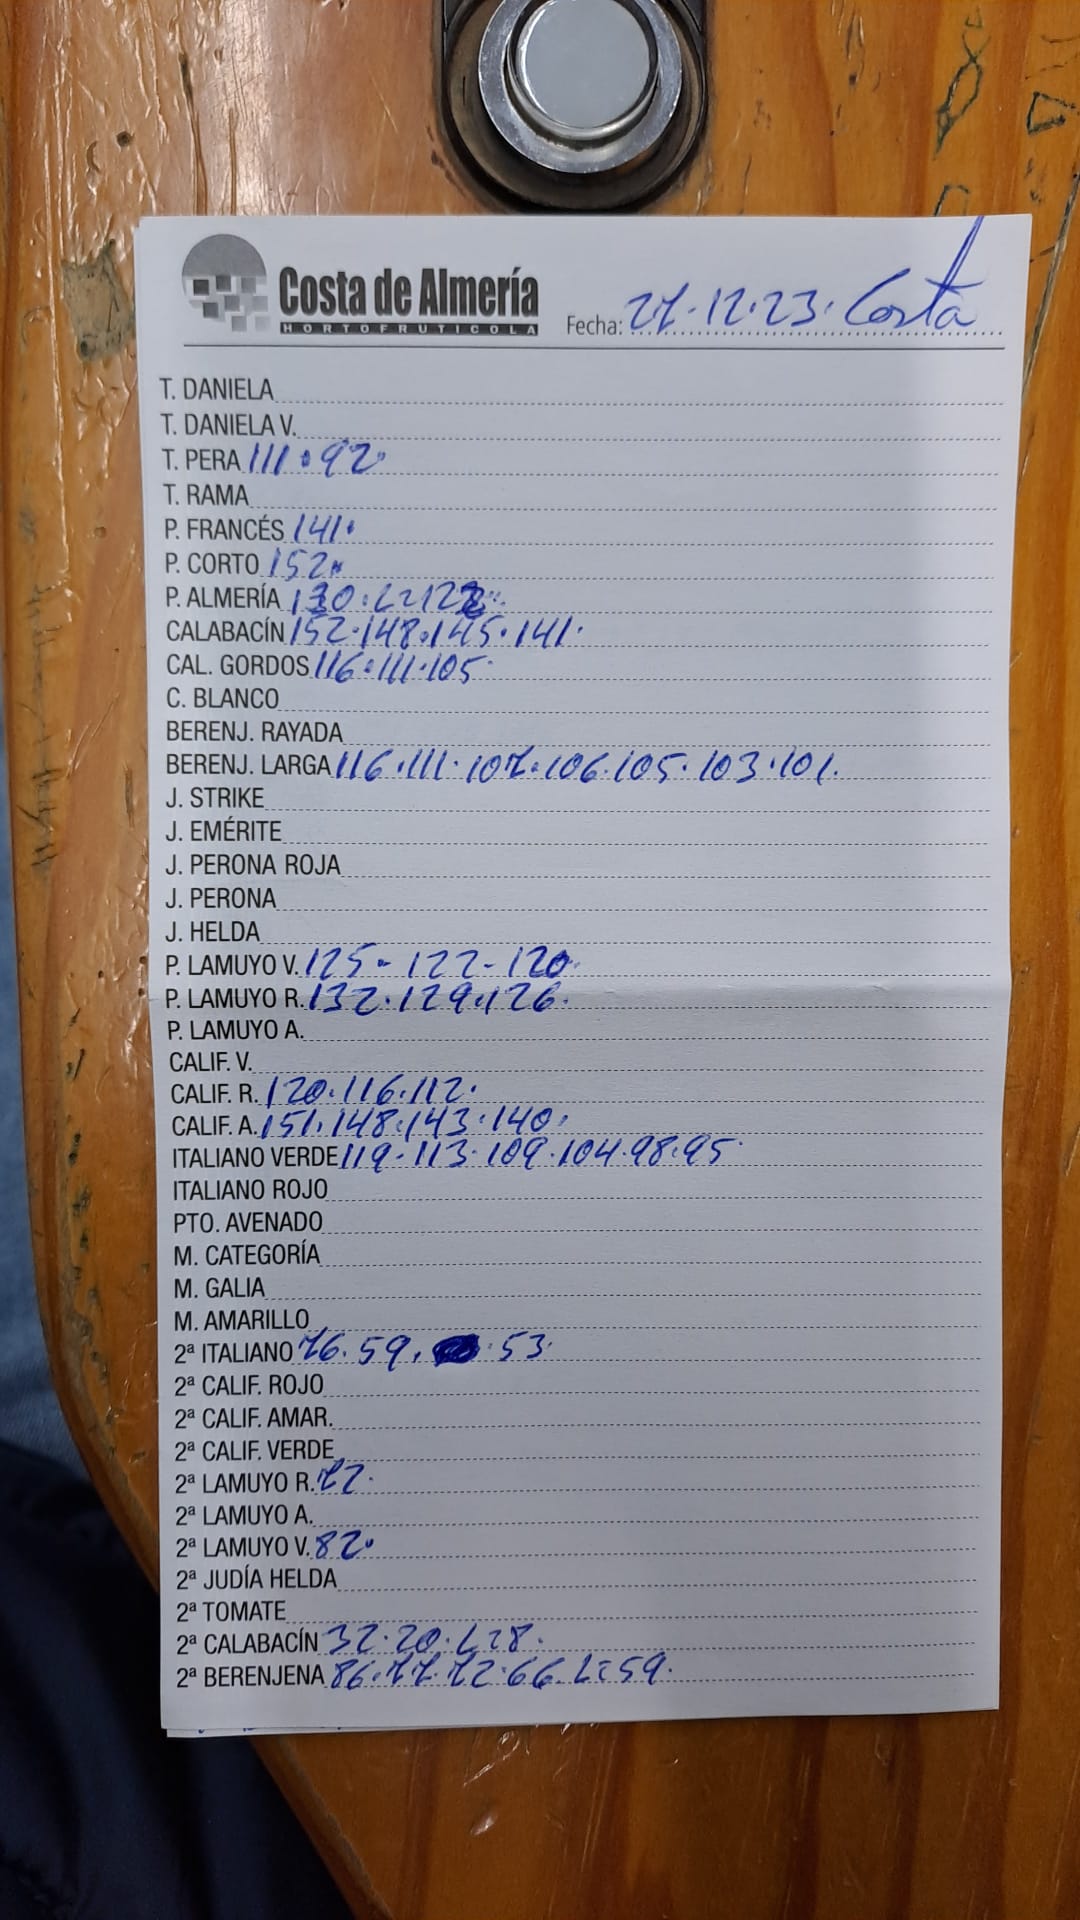 Costa de Almería
HORTOFRUTICOLA
Fecha: 27.12.23. Costa
T. DANIELA
T. DANIELA V.
T. PERA 111.92.
T. RAMA
P. FRANCÉS 141.
P. CORTO 152.
P. ALMERÍA 130.L=122.
CALABACÍN 152.148.145.141.
CAL. GORDOS 116.111.105.
C. BLANCO
BERENJ. RAYADA
BERENJ. LARGA 116.111.107.106.105.103.101.
J. STRIKE
J. EMÉRITE
J. PERONA ROJA
J. PERONA
J. HELDA
P. LAMUYO V. 125-122-120.
P. LAMUYO R. 132.129.126.
P. LAMUYO A.
CALIF. V.
CALIF. R. 120.116.112.
CALIF. A. 151.148.143.140.
ITALIANO VERDE 119.113.109.104.98.95.
ITALIANO ROJO
PTO. AVENADO
M. CATEGORÍA
M. GALIA
M. AMARILLO
2ª ITALIANO 76.59. 53.
2ª CALIF. ROJO
2ª CALIF. AMAR.
2ª CALIF. VERDE
2ª LAMUYO R. 72.
2ª LAMUYO A.
2ª LAMUYO V. 82.
2ª JUDÍA HELDA
2ª TOMATE
2ª CALABACÍN 32.20.L=8.
2ª BERENJENA 86.77.72.66.L=59.